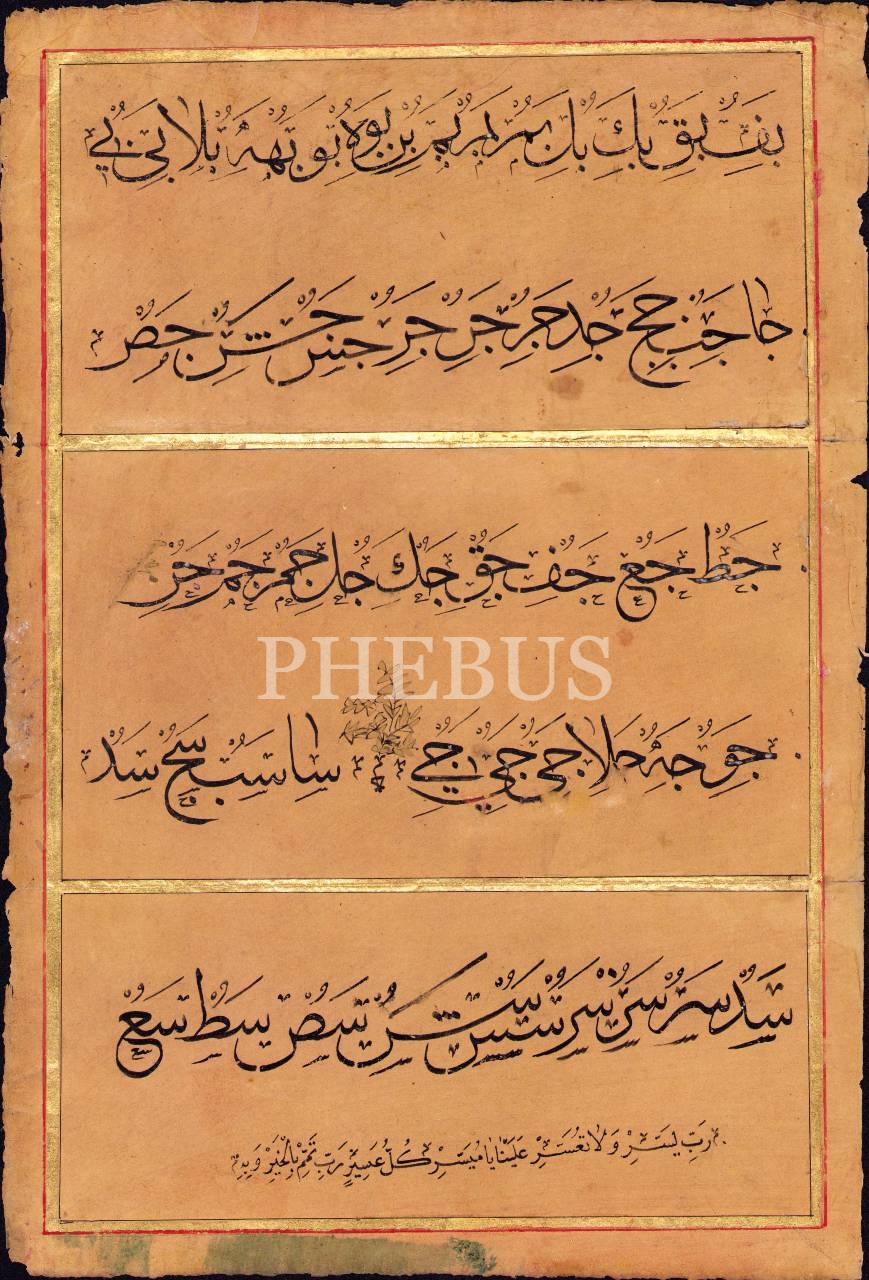 بف بق بك بل بم بمر بم بن بو به بو بهه بلا بى بي
جا جب جج جد جر جر جر جس جس جص
جط جع جف جق جك جل جم جم جن
PHEBUS
جو جه جلا جى جى جي سا سب سح سد
سد سر سر سر سس س سص سط سع
رَبِّ يَسِّرْ وَلَا تُعَسِّرْ عَلَيْنَا يَا مُيَسِّرَ كُلِّ عَسِيرٍ رَبِّ تَمِّمْ بِالْخَيْرِ وَبِهِ